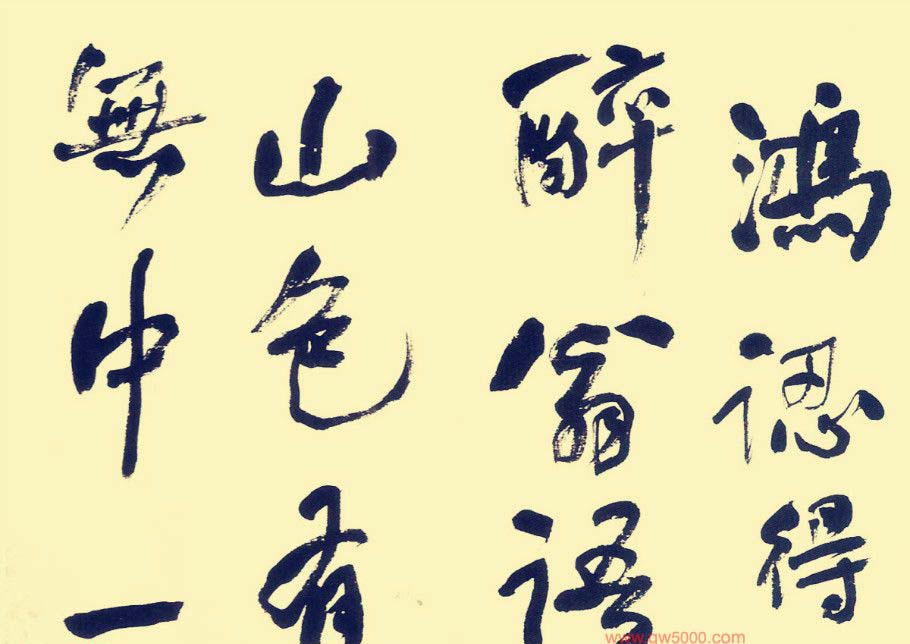 鴻認得
醉翁語
山色有
無中一
www.qw5000.com